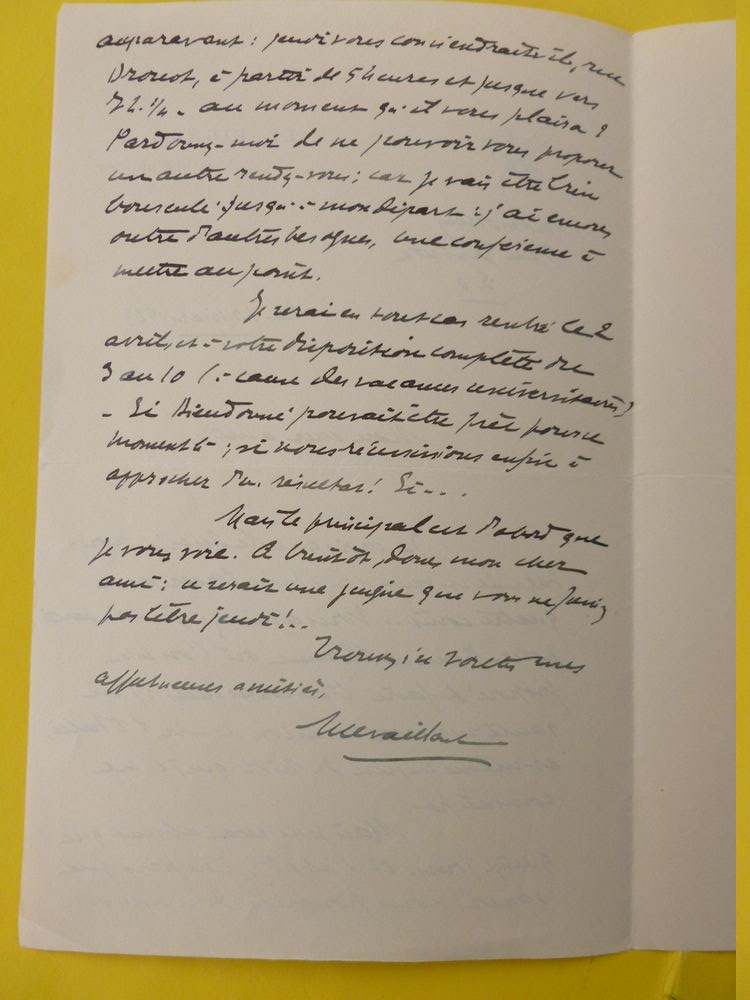 auparavant : jeudi vous conviendrait-il, rue
Drouot, à partir de 5 heures et jusque vers
7 h. 1/4 - au moment qu'il vous plaira ?
Pardonnez-moi de ne pouvoir vous proposer
un autre rendez-vous ; car je vais être bien
bousculé jusqu'à mon départ : j'ai encore
outre d'autres besognes, une conférence à
mettre au point.
Je serai en tout cas rentré le 2
avril, et à votre disposition complète du
3 au 10 (à cause des vacances universitaires)
- Si Dieudonné pouvait être prêt pour ce
moment là ; si nous réussissions enfin à
approcher d'un résultat ! Si - - .
Mais le principal est d'abord que
je vous voie. A bientôt, donc, mon cher
ami : ce serait une guigne que vous ne fussiez
pas libre jeudi ! . .
Trouvez ici toutes mes
affectueuses amitiés,